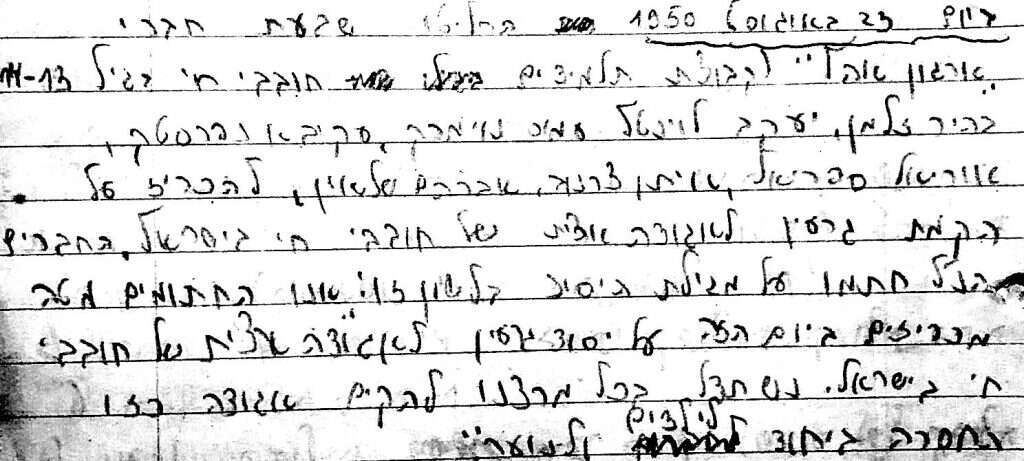 ביום 23 באוגוסט 1950 החליטו שבעת חברי
"ארגון אוהל" לקבוצת תלמידים חובבי חי בגיל 13-14
בהיר זלמן, יעקב לוינטל עמוס נוימרק, עקיבא
אוריאל ספריאל, איתן צרנוב, אברהם, להכריז על
הקמת גרעין לאגודה ארצית של חובבי חי בישראל. החברים
הנ"ל חתמו על מגילת היסוד בלשון זו: "אנו החתומים מטה
מכריזים ביום הזה על יסוד גרעין לאגודה ארצית של חובבי
חי בישראל. נשתדל בכל מרצנו להקים אגודה כזו
החסרה ביחוד לילדים ולנוער"